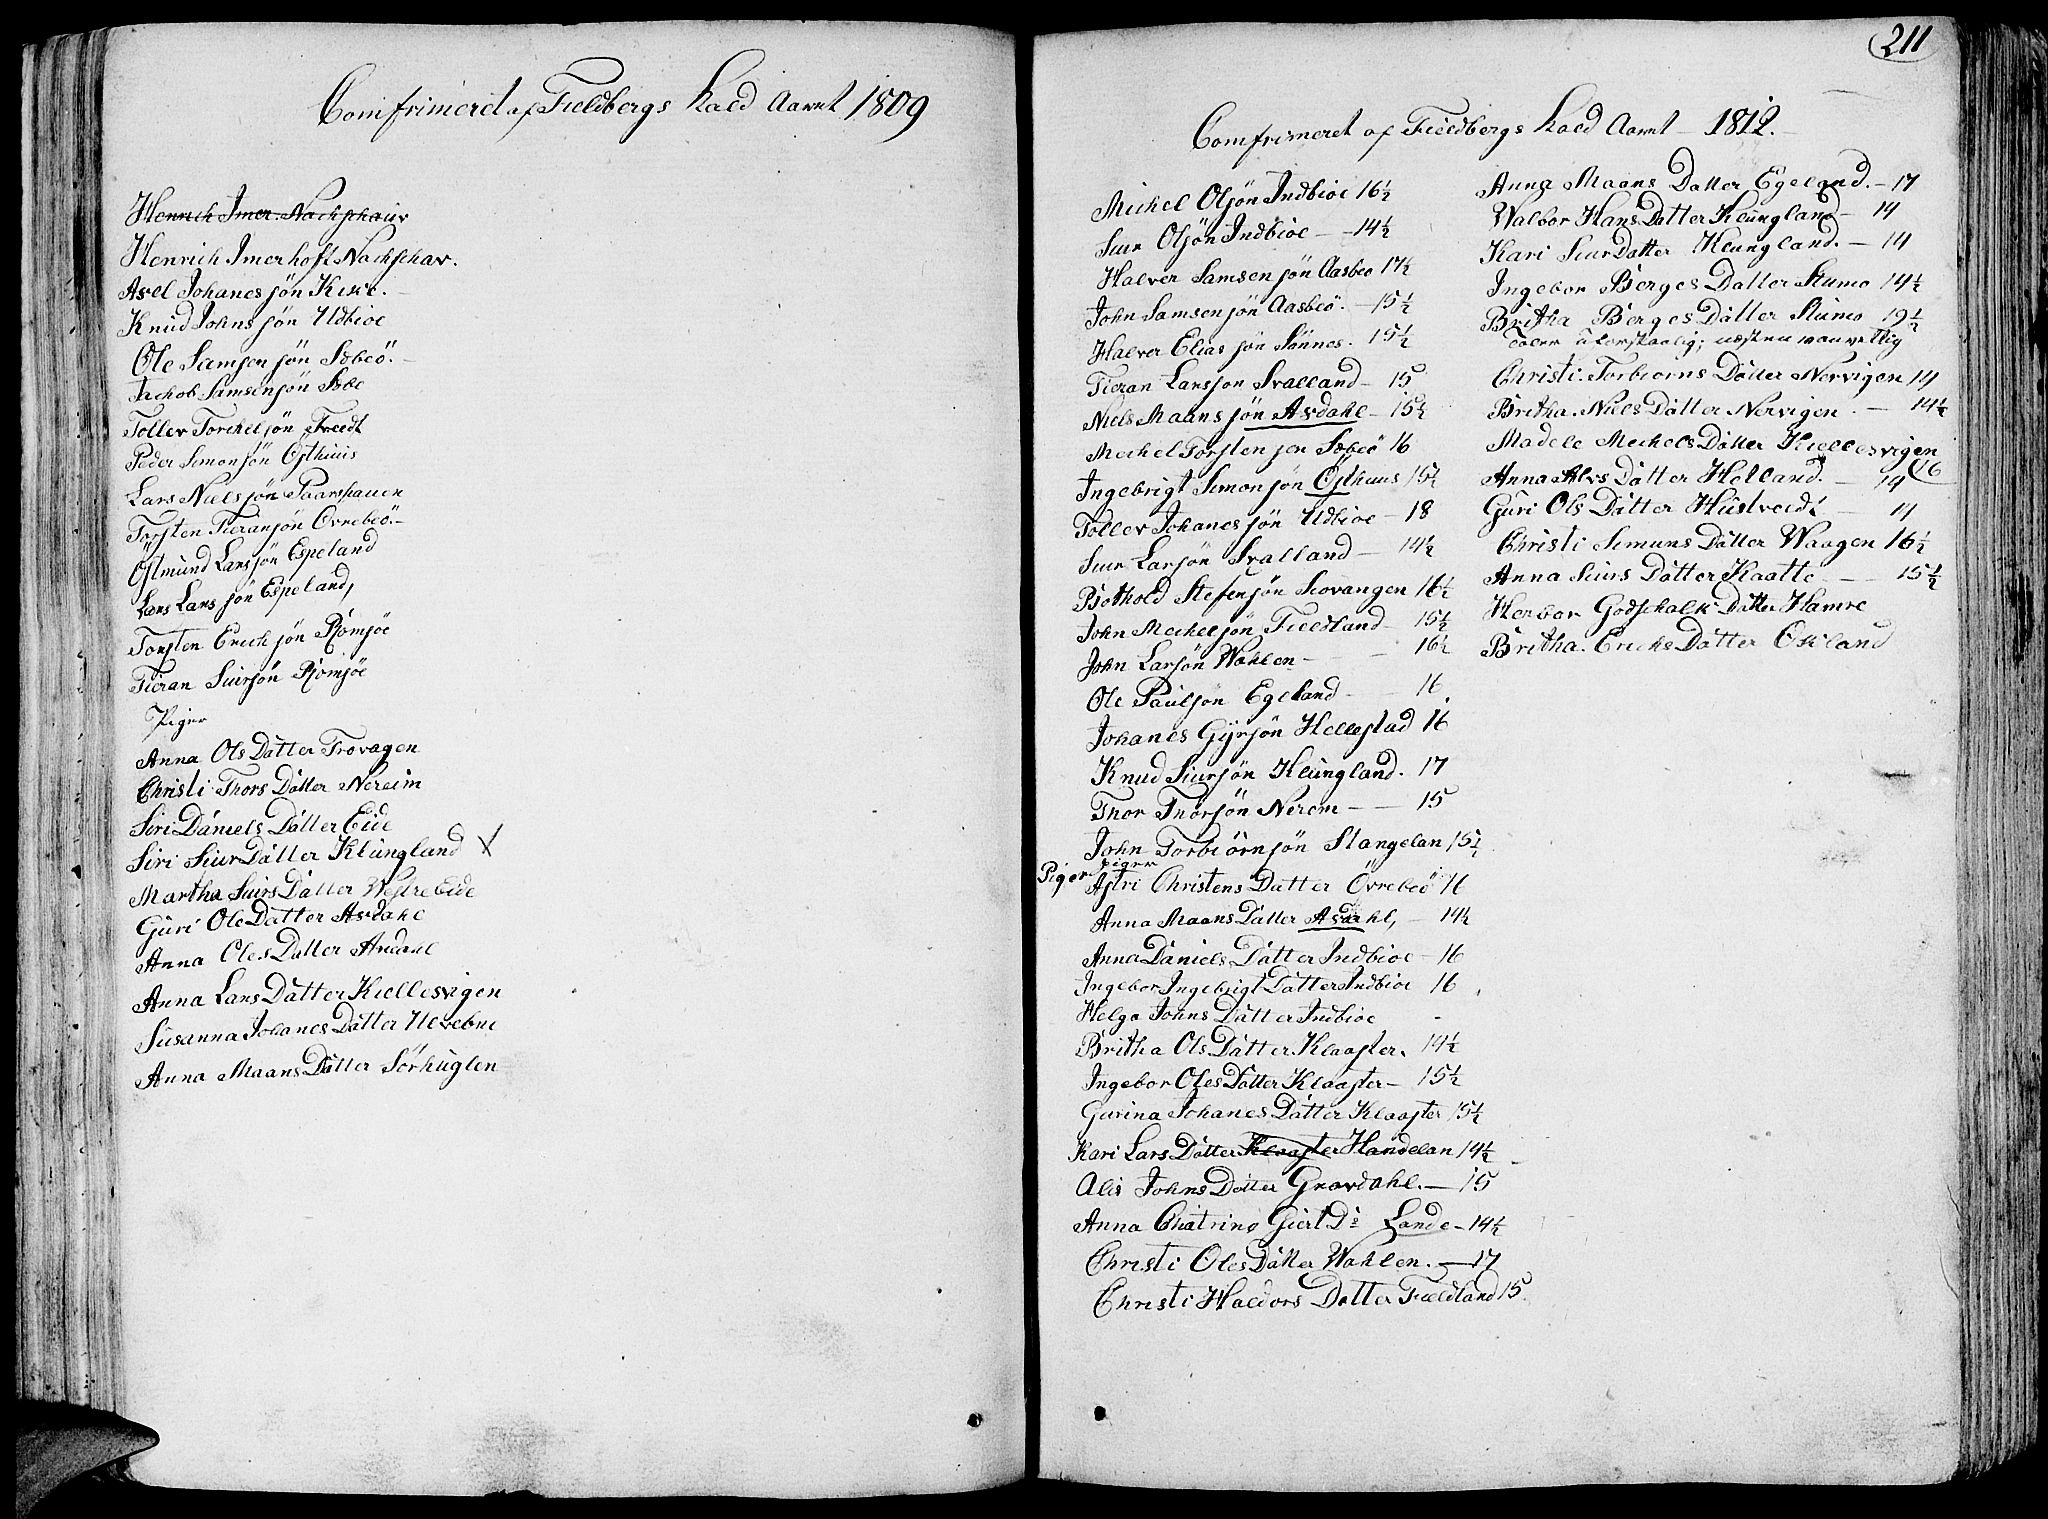 Comfrimeret af Fieldbergs Kald Aaret 1809
Henrich Imer Nachschauv
Henrich Imerhoft Nachschav.
Axel Johanes sön Kirke.
Knud Johns sön Udbioe
Ole Samsen sön Sæbeö.
Jachob Samsensön Sæbe
Tollev Torchelsön Tvedt
Peder Simonsön Östhuus
Lars Nielssön Paarshauen
Torsten Tieransön Ovrebeö.
Östmund Larssön Espeland
Lars Lars sön Espeland,
Torsten Erich sön Römsöe
Tieran Siursön Römsöe
Piger
Anna Ols Datter Trovagen
Christi Thors Datter Nereim
Siri Daniels Datter Eide
Siri Siur Datter Klungland X
Martha Siurs Datter Westre Eide
Guri Ole Datter Asdahl
Anna Oles Datter Andahl
Anna Lars Datter Kiellesvigen
Susanna Johanes Datter
Anna Maans Datter Sörhuglen
211
Comfrimeret af Fieldbergs Kald Aaret 1812.
Michel Olsön Indbioe 16½
Siur Olsön Indbioe 14½
Halver Samsen sön Aasbeo 17½
John Samsen sön Aasbeö. 15½
Halver Elias sön Sönnes. 15½
Tieran Larsson Svalland 15
Niels Maans sön Asdahl 15½
Mechel Torsten sen Sæbeö 16
Ingebrigt Simon sön Östhuus 15½
Tollev Johanes sön Udbioe 18
Siur Larsön Svalland 14½
Bothold Stefensön Scovangen 16½
John Mechelsön Fieldland 15½
John Larsön Wahlen 16½
Ole Paulson Egeland 16
Johanes Gyrsön Hellestad 16
Knud Siursön Klungland. 17
Thor Thorsön Nerem 15
John Torbiörnsön Stangelan 15½
Piger Piger
Astri Christens Datter Övrebeö 16
Anna Maans Datter Asdahl, 14½
Anna Daniels Datter Indbioe 16
Ingebor Ingebrigt Datter Indbioe 16
Helga Johns Datter Indbioe
Britha Ols Datter Klaaster. 14½
Ingebor Oles Datter Klaaster 15½
Gurina Johanes Datter Klaaster 15½
Kari Lars Datter Klaaster Handelan 14½
Alis Johns Datter Grovdahl. 15
Anna Chatrina Giert Dr Lande 14½
Christi Oles Datter Wahlen. 17
Christi Haldors Datter Fieldland 15
Anna Maans Datter Egeland. 17
Walbor Hans Datter Klungland 14
Kari Siur Datter Klungland. 14
Ingebor Börges Datter Skimo 14½
Britha Börges Datter Skimo 19½
næsten vanvettig
Christi Torbiorns Datter Nervigen 14
Britha Niels Datter Nervigen 14½
Madele Mechels Datter Kiellesvigen 16
Anna Alvs Datter Helland. 14
Guri Ols Datter Hustveedt 14
Christi Simuns Datter Waagen 16½
Anna Siurs Datter Kaatte 15½
Herbor Godschalk Datter Hamre
Britha Erichs Datter Okland